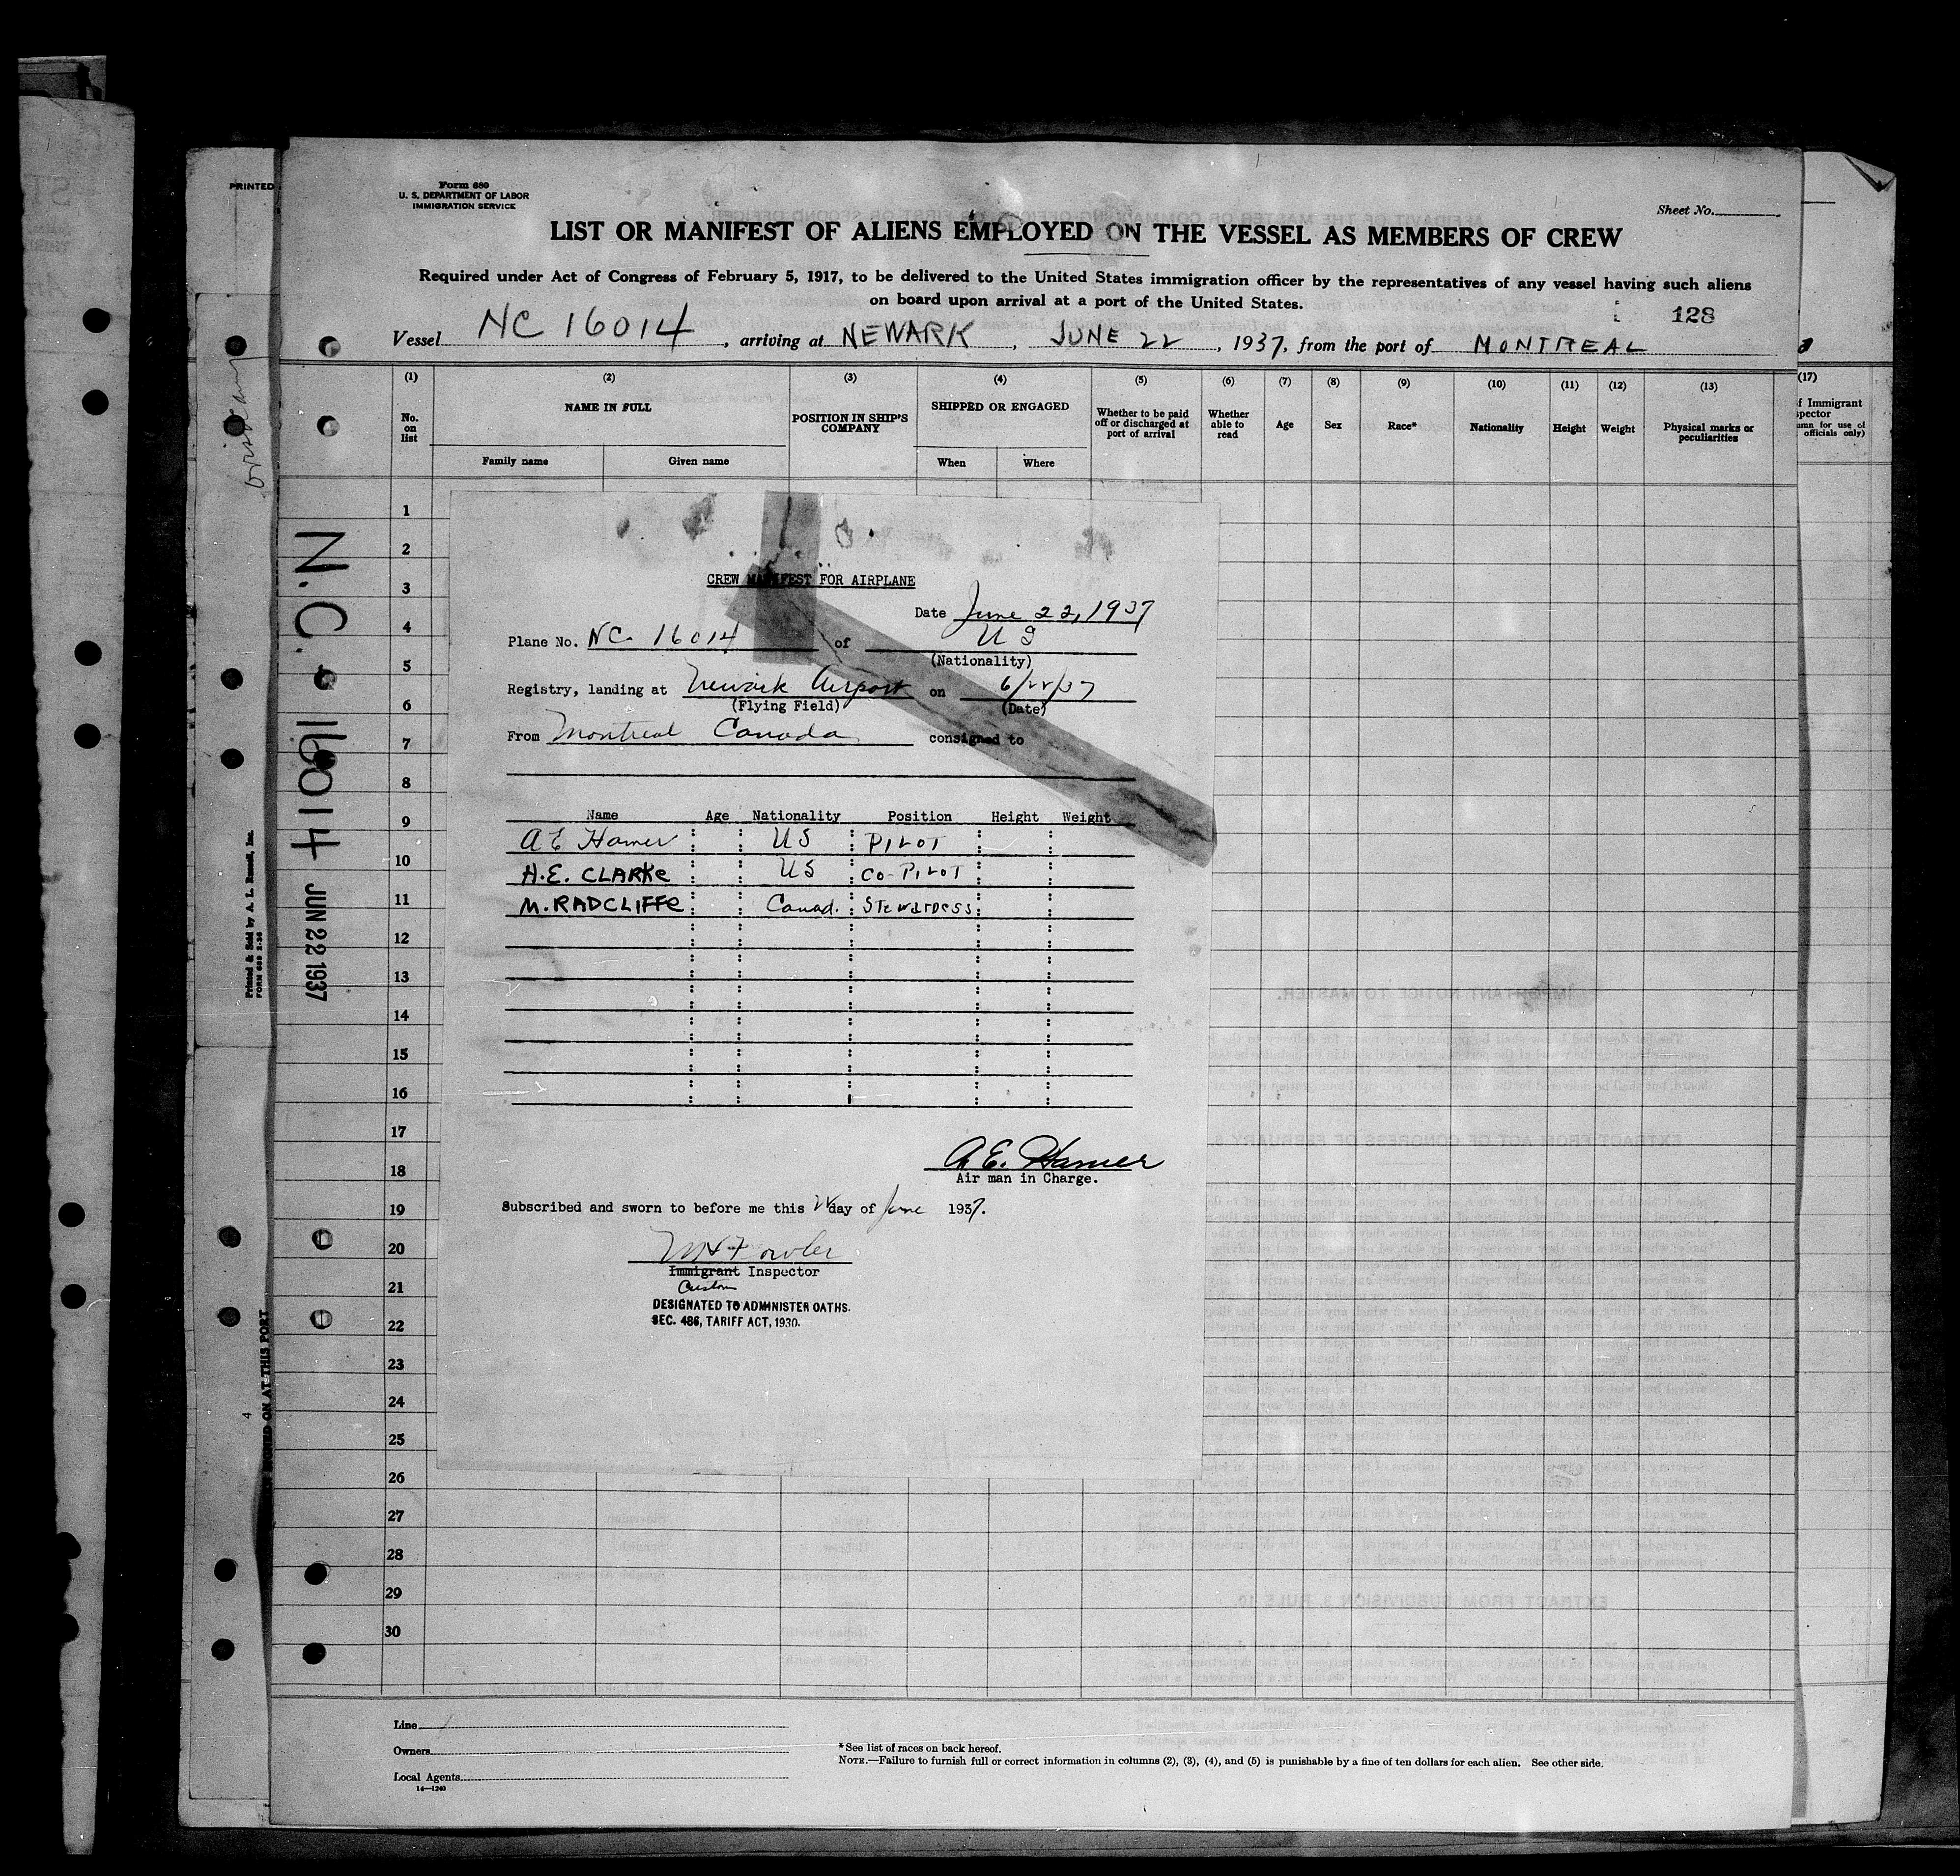 PRINTED
Form 680
U. S. DEPARTMENT OF LABOR
IMMIGRATION SERVICE
Sheet No.
LIST OR MANIFEST OF ALIENS EMPLOYED ON THE VESSEL AS MEMBERS OF CREW
Required under Act of Congress of February 5, 1917, to be delivered to the United States immigration officer by the representatives of any vessel having such aliens
on board upon arrival at a port of the United States.
128
Vessel NC 16014, arriving at NEWARK, JUNE 22, 1937, from the port of MONTREAL
(1) (2) (3) (4) (5) (6) (7) (8) (9) (10) (11) (12) (13) (17)
No. on list
NAME IN FULL
Family name Given name
POSITION IN SHIP'S COMPANY
SHIPPED OR ENGAGED
When Where
Whether to be paid off or discharged at port of arrival
Whether able to read
Age
Sex
Race*
Nationality
Height
Weight
Physical marks or peculiarities
of Immigrant
officials only)
1
2
3
4
5
6
7
8
9
10
11
12
13
14
15
16
17
18
19
20
21
22
23
24
25
26
27
28
29
30
N.C. 16014
JUN 22 1937
Printed & Sold by A. L. Russell, Inc.
FORM 680 2-36
ON AT THIS PORT
4
CREW MANIFEST FOR AIRPLANE
Date June 22, 1937
Plane No. NC. 16014 of US
(Nationality)
Registry, landing at Newark Airport on 6/22/37
(Flying Field) (Date)
From Montreal Canada consigned to
Name Age Nationality Position Height Weight
A E Hamer US PILOT
H.E. CLARKe US CO-PILOT
M. RADCLIFFe Canad. STewarDess
A. E. Hamer
Air man in Charge.
Subscribed and sworn to before me this 22 day of June 1937.
Fowler
Immigrant Inspector
Custom
DESIGNATED TO ADMINISTER OATHS.
SEC. 486, TARIFF ACT, 1930.
Line
Owners
Local Agents
14—1240
*See list of races on back hereof.
NOTE.—Failure to furnish full or correct information in columns (2), (3), (4), and (5) is punishable by a fine of ten dollars for each alien. See other side.